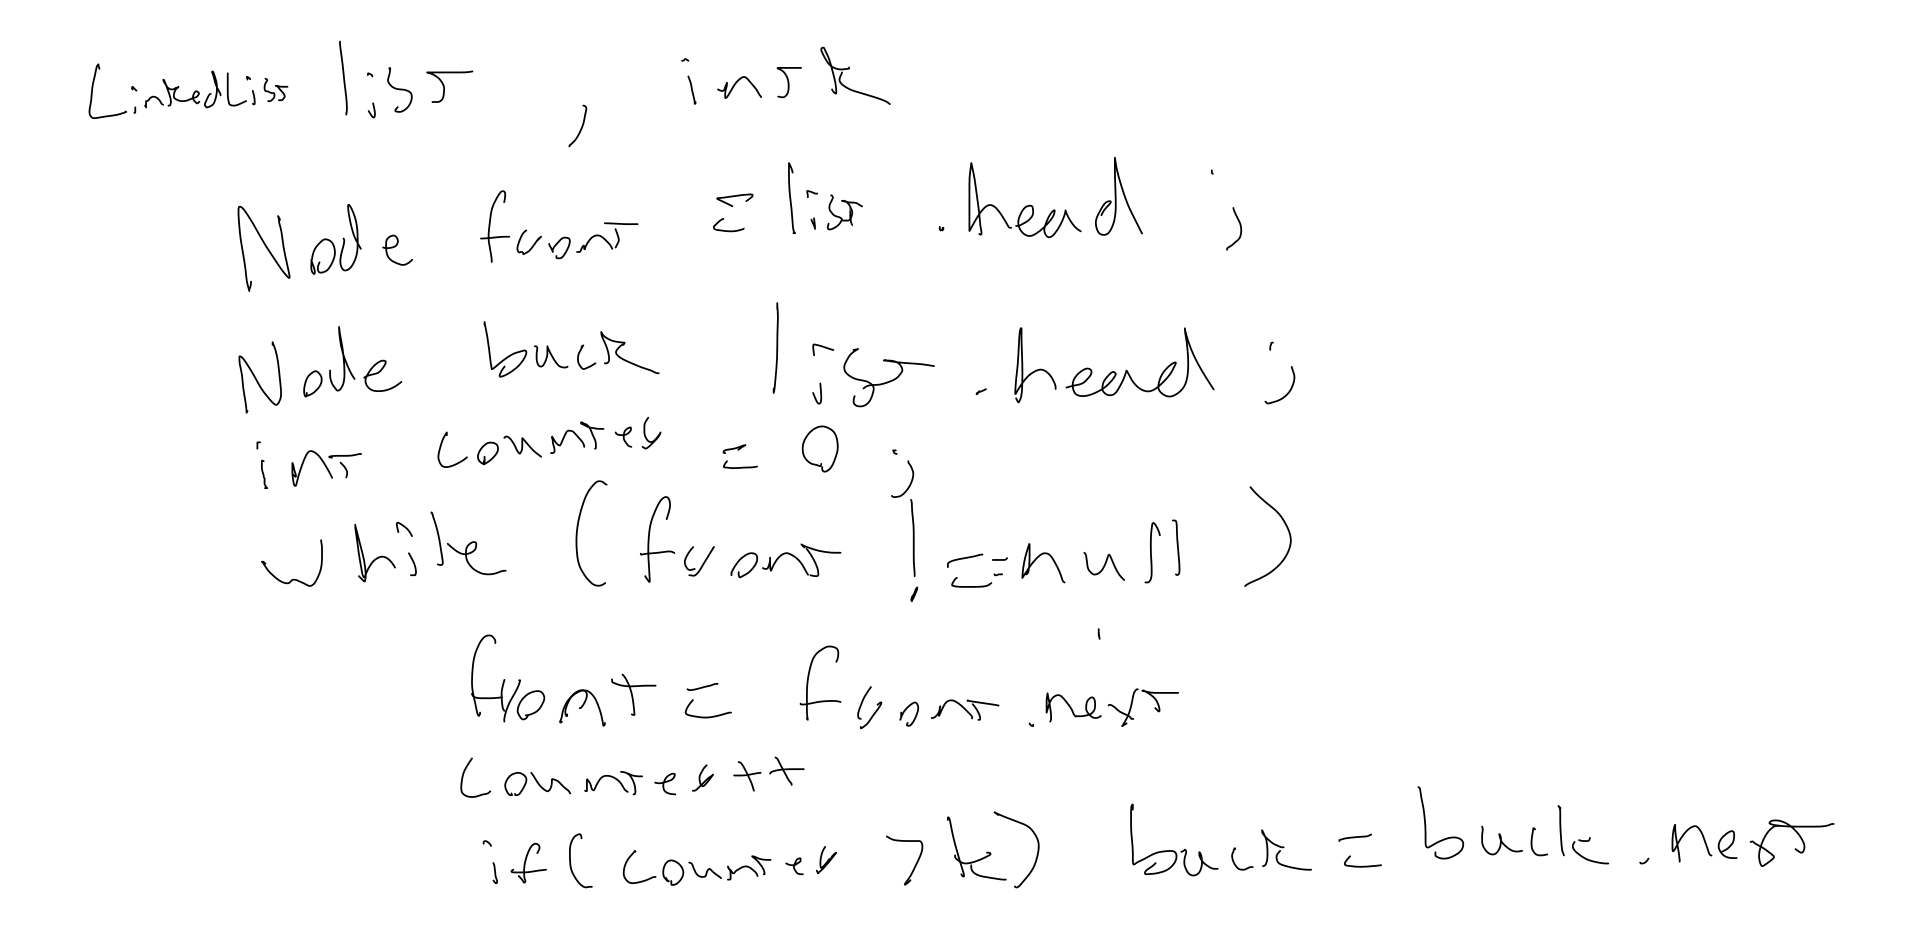 LinkedList list , int k
Node front = list .head ;
Node back list .head ;
int counter = 0 ;
while (front !== null )
front = front .next
counter ++
if( counter > k) back = back .next